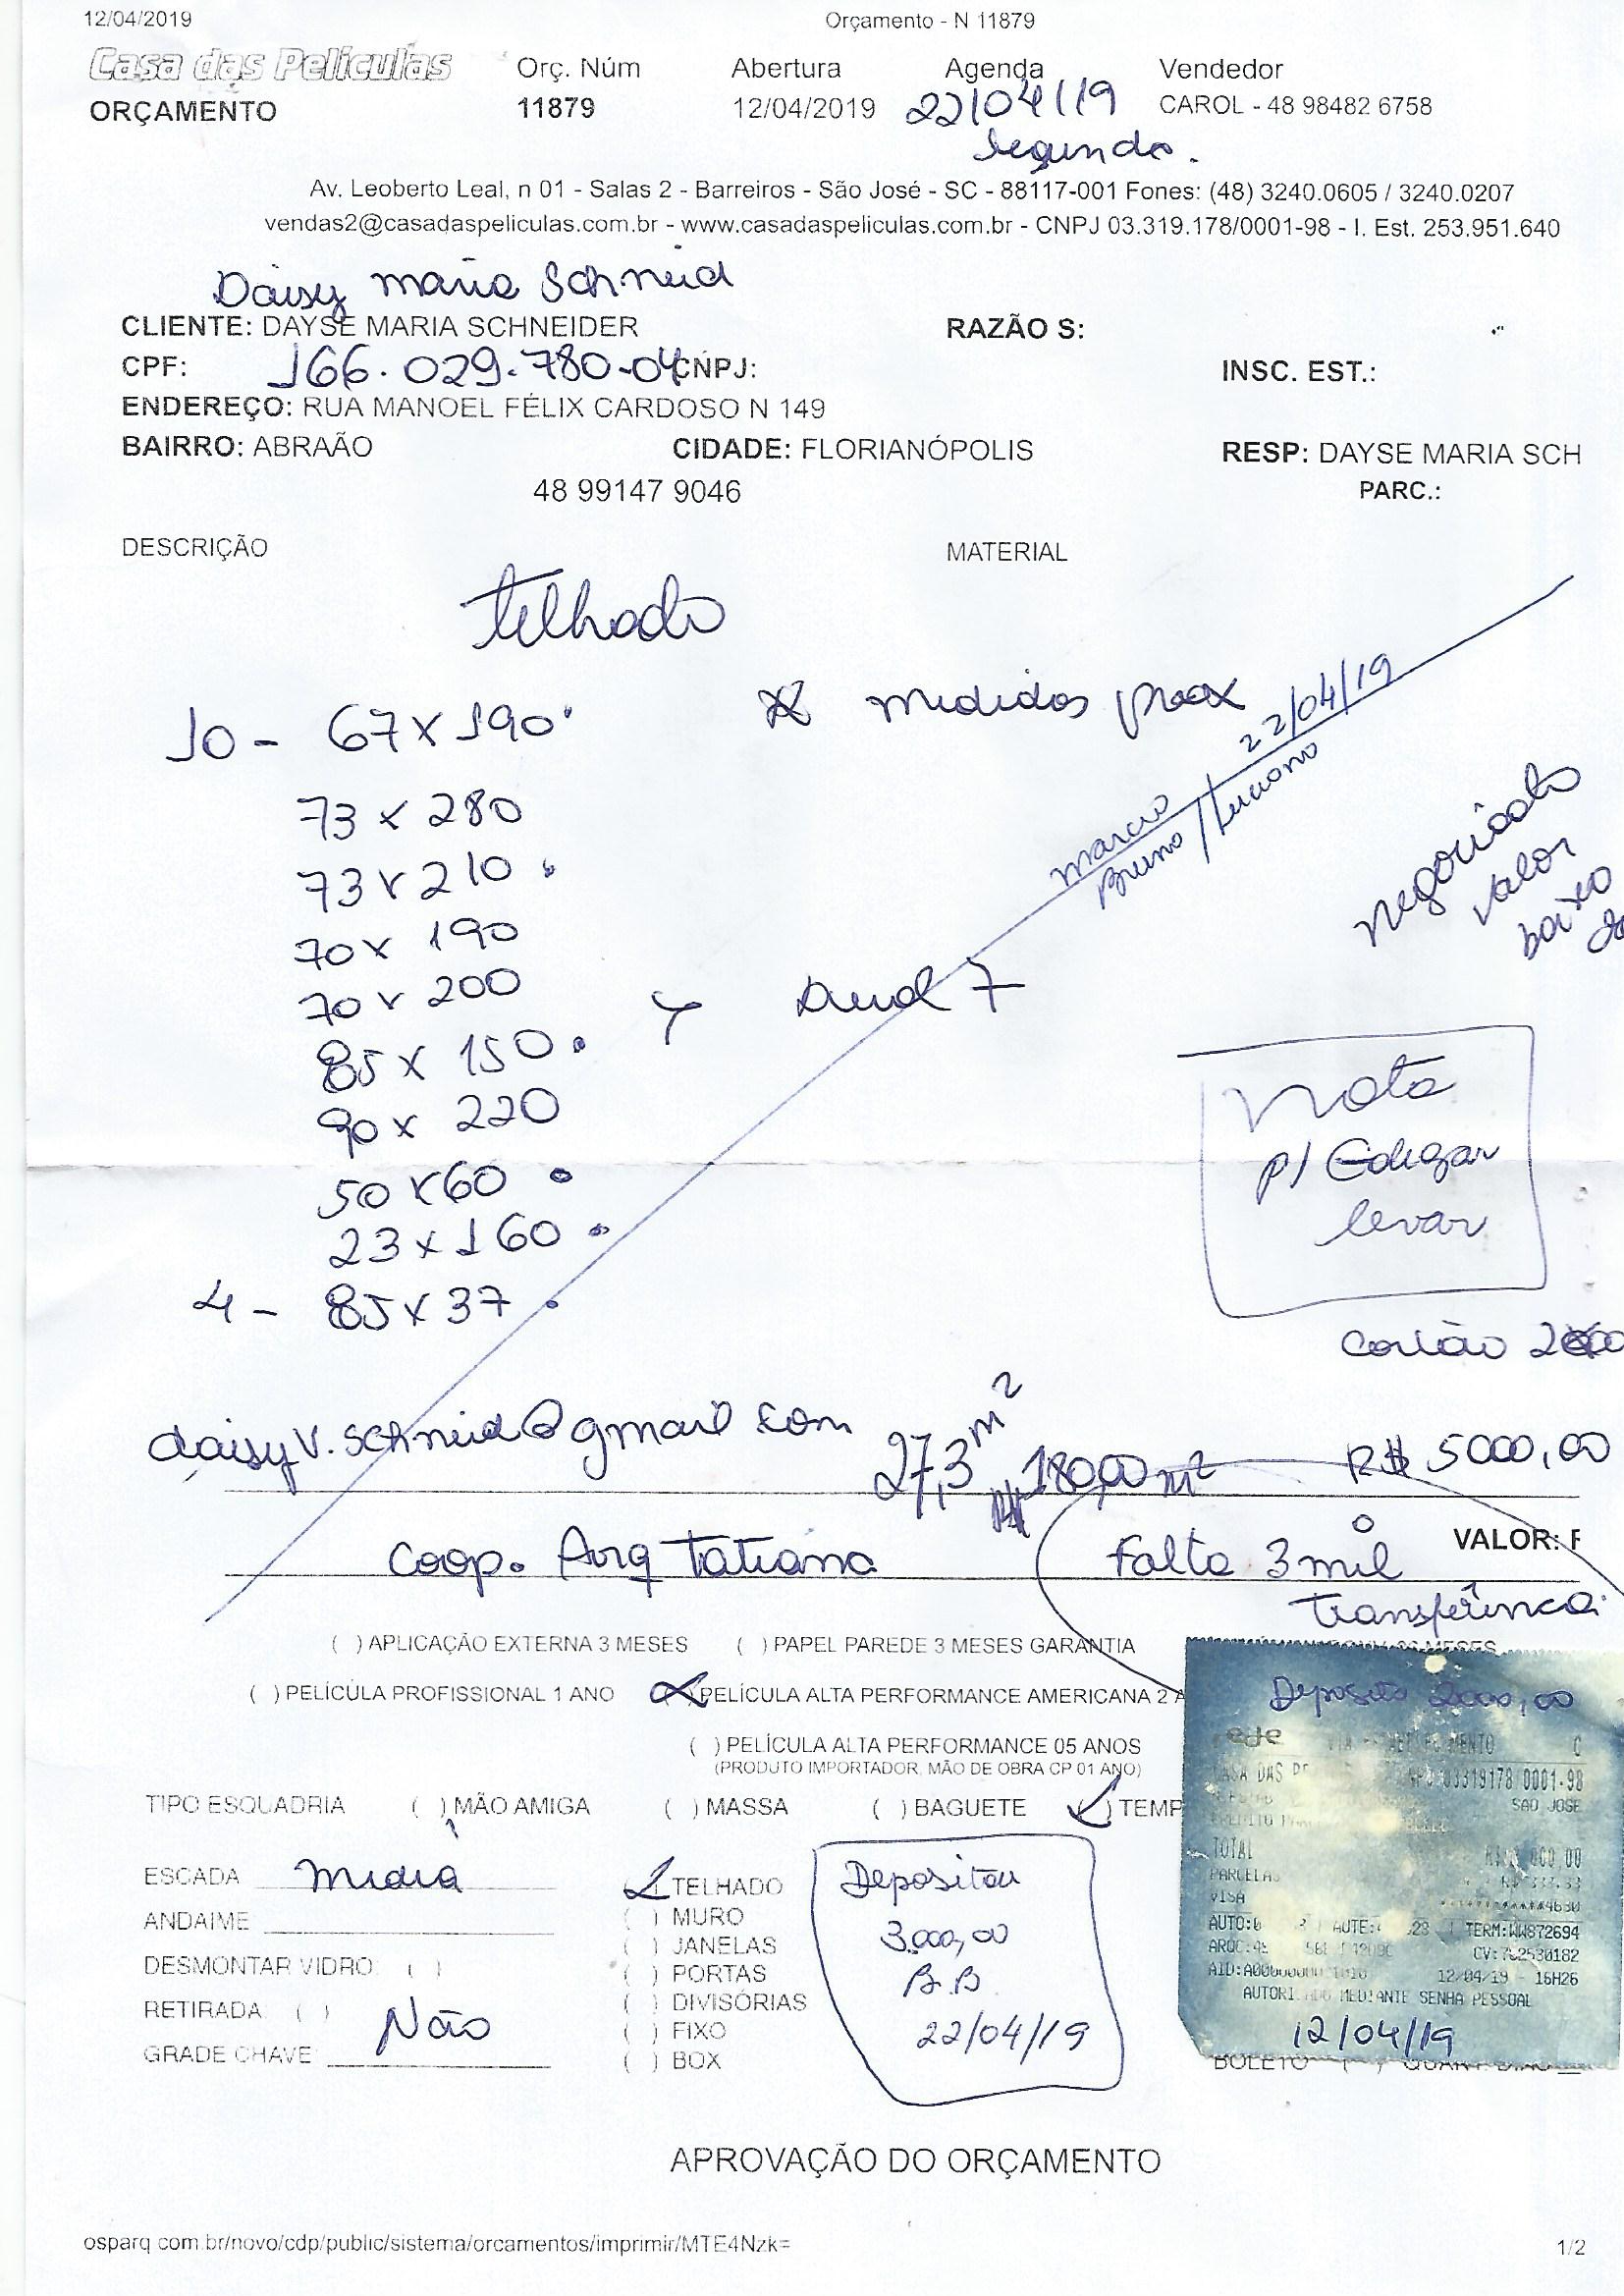 12/04/2019 Orçamento - N 11879
Casa das Películas Orç. Núm Abertura Agenda Vendedor
ORÇAMENTO 11879 12/04/2019 22/04/19 CAROL - 48 98482 6758
segunda.
Av. Leoberto Leal, n 01 - Salas 2 - Barreiros - São José - SC - 88117-001 Fones: (48) 3240.0605 / 3240.0207
vendas2@casadaspeliculas.com.br - www.casadaspeliculas.com.br - CNPJ 03.319.178/0001-98 - I. Est. 253.951.640
Daisy Maria Schneid
CLIENTE: DAYSE MARIA SCHNEIDER RAZÃO S:
CPF: 166.029.780-04 CNPJ: INSC. EST.:
ENDEREÇO: RUA MANOEL FÉLIX CARDOSO N 149
BAIRRO: ABRAÃO CIDADE: FLORIANÓPOLIS RESP: DAYSE MARIA SCH
48 99147 9046 PARC.:
DESCRIÇÃO MATERIAL
telhado
10 - 67 x 190 medidas prox
22/04/19
73 x 280 Marcio
Bruno / Luciano
73 x 210 negociado
valor
baixo
70 x 190
70 x 200 Dual 7
85 x 150
90 x 220 Nota
50 x 60 p/ Edegar
23 x 160 levar
4 - 85 x 37
Cartão
daisyv.schneid@gmail.com 27,3 m² 180,00 m² R$ 5000,00
Coop. Arq Tatiana Falta 3 mil VALOR:
transferência
( ) APLICAÇÃO EXTERNA 3 MESES ( ) PAPEL PAREDE 3 MESES GARANTIA
( ) PELÍCULA PROFISSIONAL 1 ANO (x) PELÍCULA ALTA PERFORMANCE AMERICANA 2 A
( ) PELÍCULA ALTA PERFORMANCE 05 ANOS
(PRODUTO IMPORTADOR, MÃO DE OBRA CP 01 ANO)
Deposito 2000,00
rede
ESTABELECIMENTO C
CASA DAS 03319178/0001-98
SAO JOSE
TOTAL
PARCELAS
VISA ************4630
AUTO: AUTE: TERM:WW872694
ARQC: CV:762530182
12/04/19 - 16H26
MEDIANTE SENHA PESSOAL
12/04/19
TIPO ESQUADRIA ( ) MÃO AMIGA ( ) MASSA ( ) BAGUETE ( ) TEMP
ESCADA media TELHADO
ANDAIME ( ) MURO
( ) JANELAS
DESMONTAR VIDRO ( ) ( ) PORTAS
RETIRADA ( ) ( ) DIVISÓRIAS
Não ( ) FIXO
GRADE CHAVE ( ) BOX
Depositou
3.000,00
B.B
22/04/19
BOLETO ( )
APROVAÇÃO DO ORÇAMENTO
osparq.com.br/novo/cdp/public/sistema/orcamentos/imprimir/MTE4Nzk= 1/2